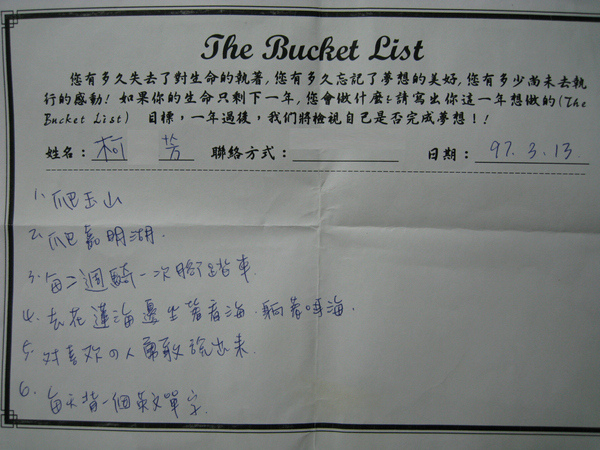 The Bucket List
您有多久失去了對生命的執著,您有多久忘記了夢想的美好,您有多少尚未去執
行的感動! 如果你的生命只剩下一年,您會做什麼?請寫出你這一年想做的(The
Bucket List) 目標,一年過後,我們將檢視自己是否完成夢想!!
姓名: 柯 芳 聯絡方式: 日期: 97.3.13.
1. 爬玉山
2. 爬嘉明湖.
3. 每二週騎一次腳踏車.
4. 去花蓮海邊坐著看海.躺著听海.
5. 对喜欢の人勇敢說出來.
6. 每天背一個英文單字.